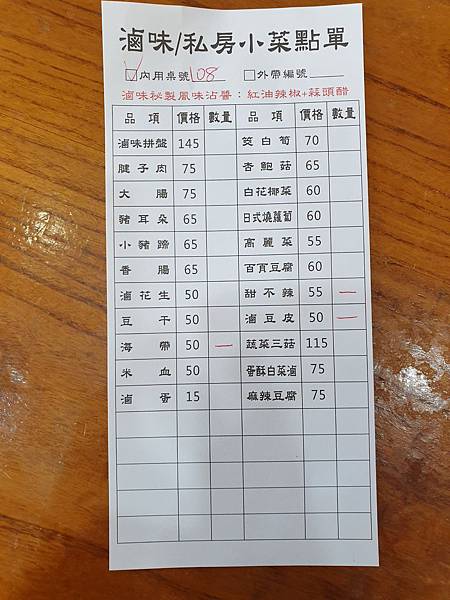 滷味/私房小菜點單
內用桌號108 外帶編號
滷味秘製風味沾醬：紅油辣椒+蒜頭醋
品項 價格 數量 品項 價格 數量
滷味拼盤 145 筊白筍 70
腱子肉 75 杏鮑菇 65
大腸 75 白花椰菜 60
豬耳朵 65 日式燒蘿蔔 60
小豬蹄 65 高麗菜 55
香腸 65 百頁豆腐 60
滷花生 50 甜不辣 55 一
豆干 50 滷豆皮 50 一
海帶 50 一 蔬菜三菇 115
米血 50 蛋酥白菜滷 75
滷蛋 15 麻辣豆腐 75